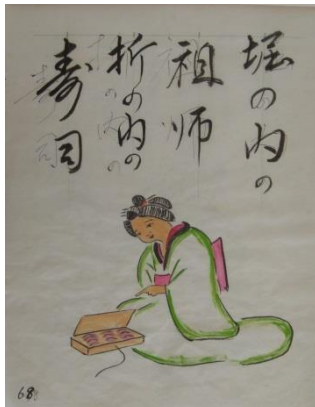 堀の内の
祖师
折の内の
寿司
68